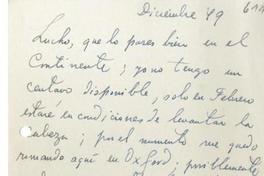 Diciembre 49
Lucho, que lo pases bien en el
Continente; yo no tengo un
centavo disponible, solo en Febrero
estaré en condiciones de levantar la
cabeza; por el momento me quedo
rumiando aquí en Oxford. posiblemente